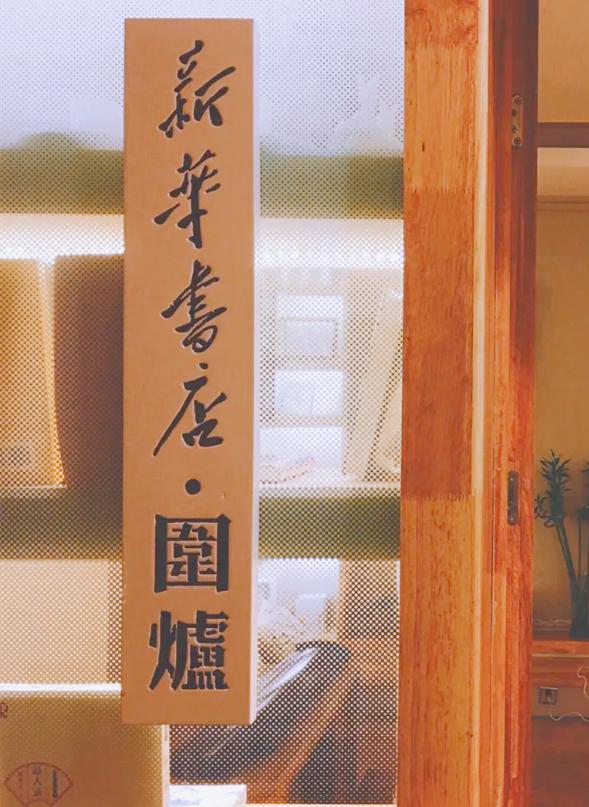 新華書店·圍爐